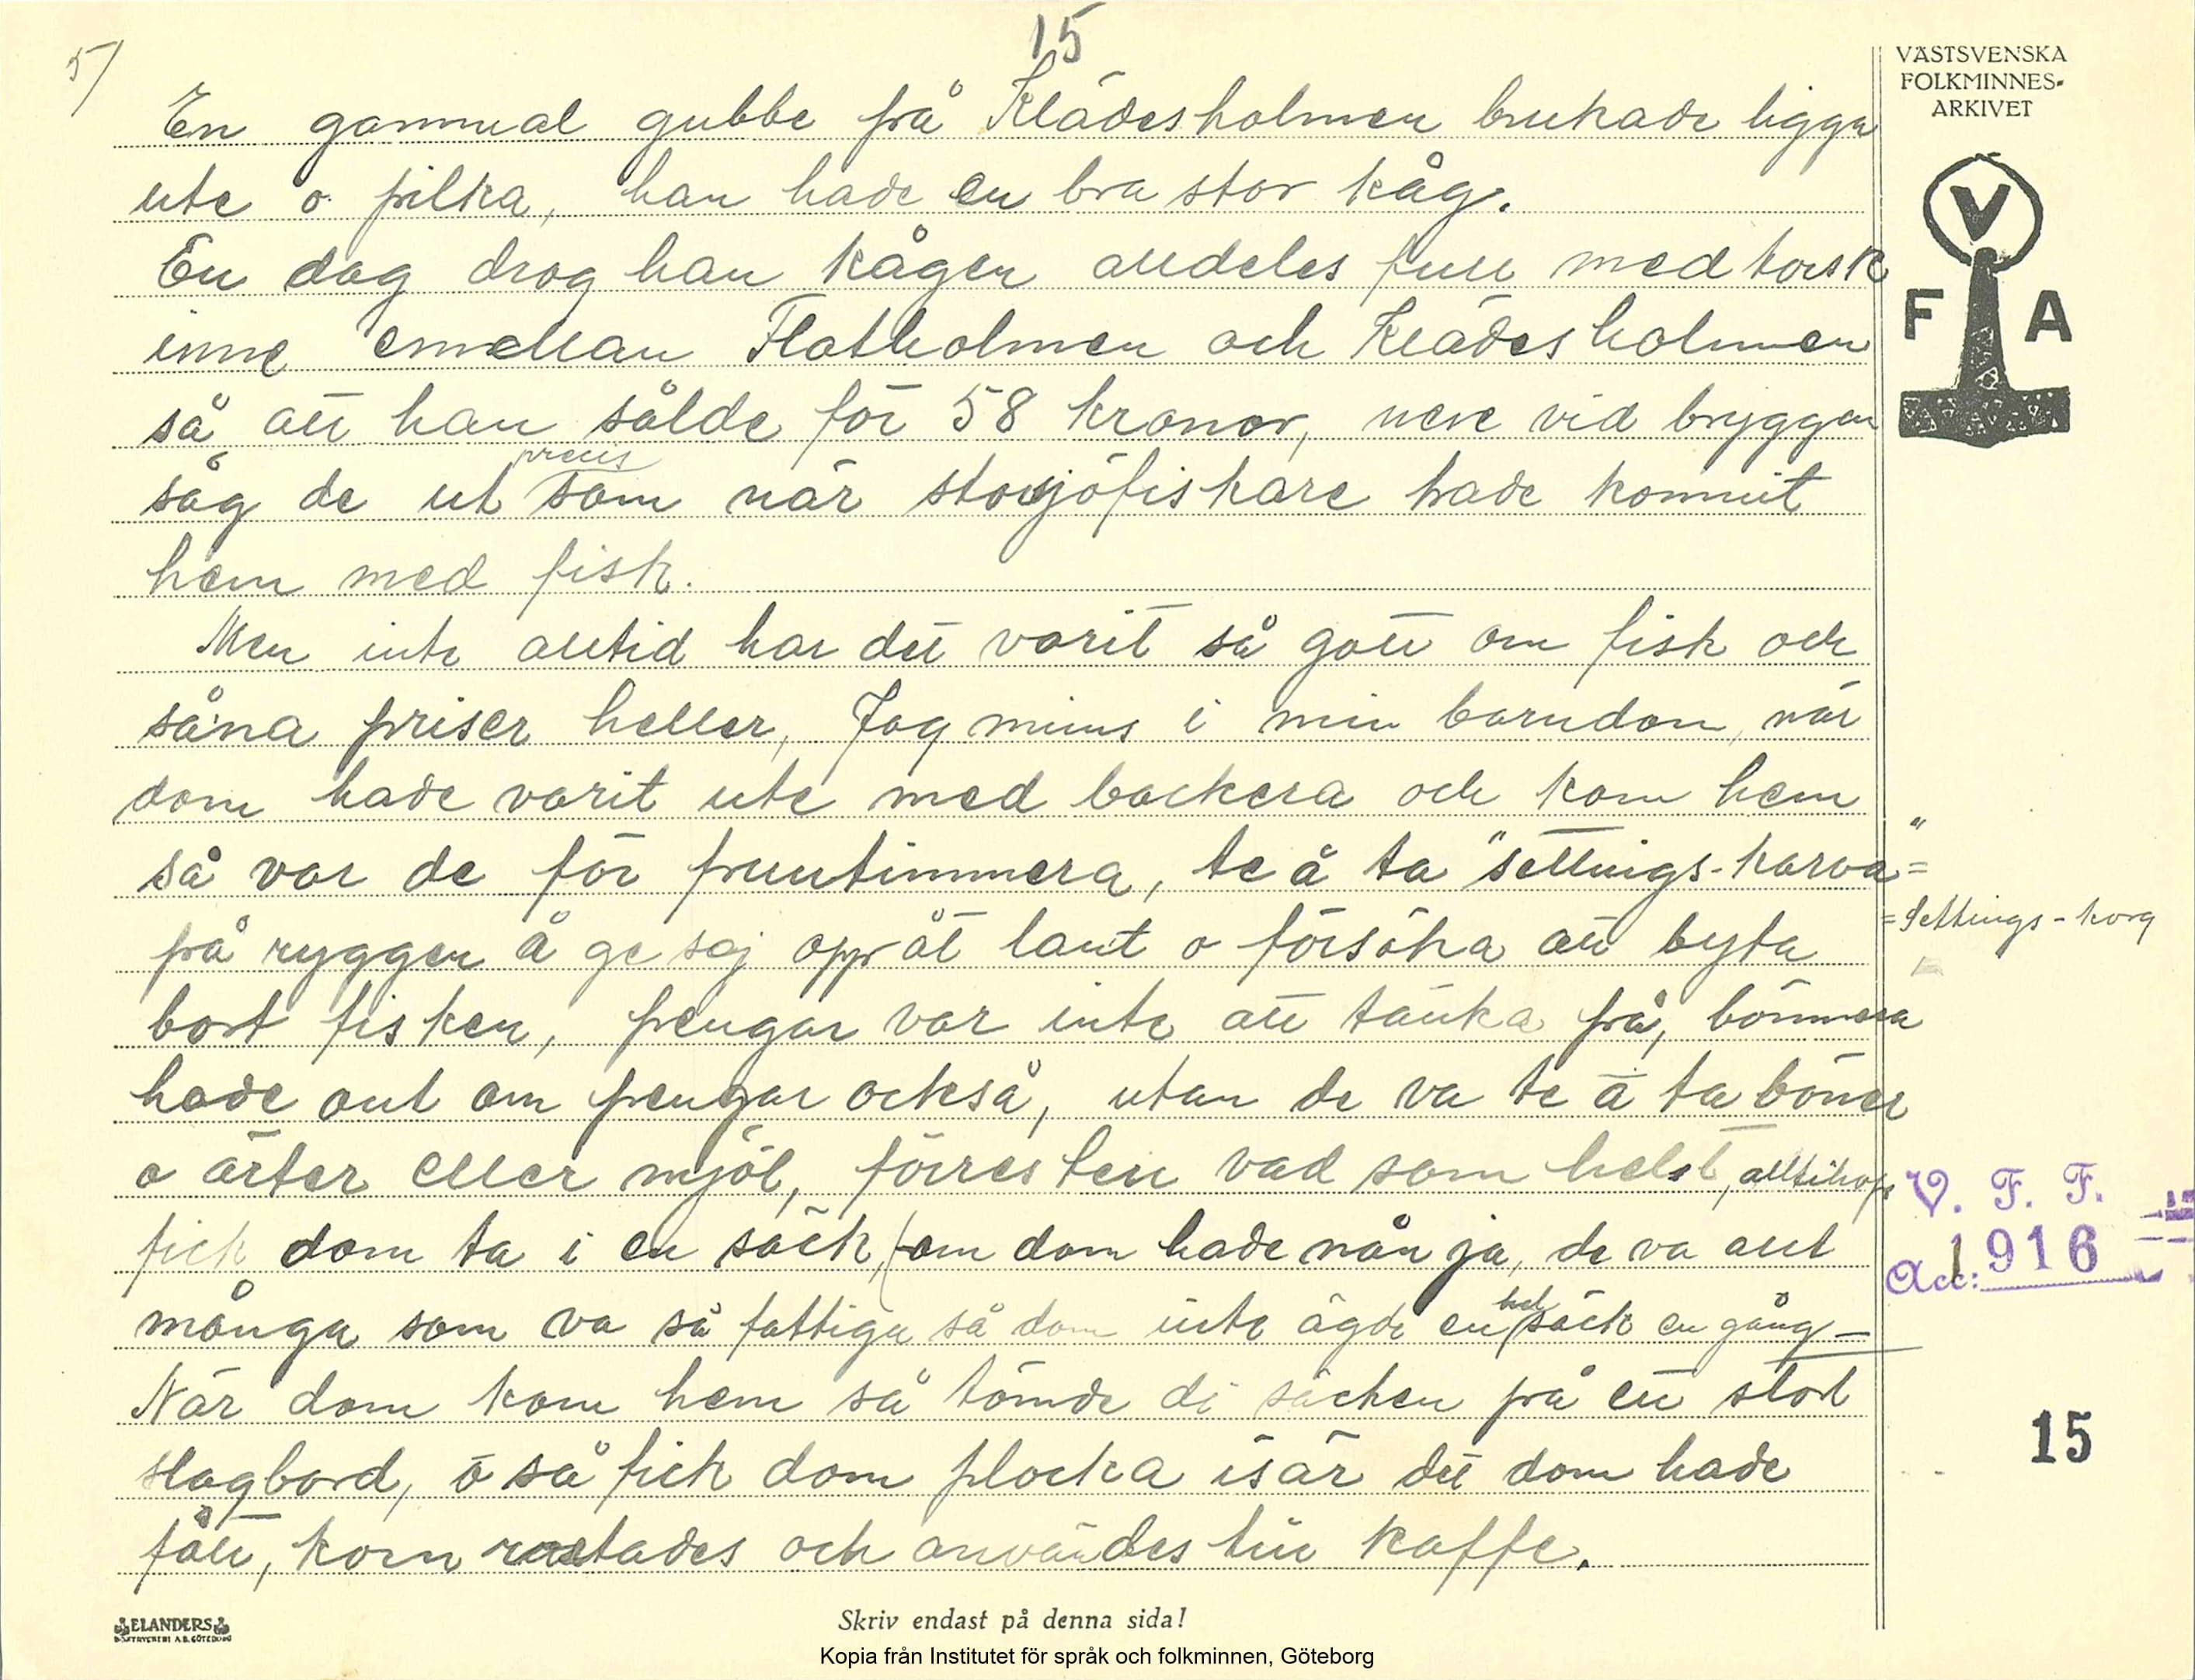 15
5/
VÄSTSVENSKA
FOLKMINNES-
ARKIVET
V
F A
En gammal gubbe på Klädesholmen brukade ligga
ute o pilka, han hade en bra stor kåg.
En dag drog han kågen alldeles full med torsk
inne emellan Flatholmen och Klädesholmen
så att han sålde för 58 kronor, nere vid bryggan
såg de ut precis som när storsjöfiskare hade kommit
hem med fisk.
Men inte alltid har det varit så gott om fisk och
såna priser heller, Jag minns i min barndom, när
dom hade varit ute med backera och kom hem
så var de för fruntimmera, te å ta "settings-karva" =
= Settings-korg
på ryggen å ge sej opp åt lant o försöka att byta
bort fisken, pengar var inte att tänka på, bönnera
hade ont om pengar också, utan de va te å ta böner
o ärter eller mjöl, förresten vad som helst, alltihop
fick dom ta i en säck, (om dom hade nån ja, de va allt
många som va så fattiga så dom inte ägde en hel säck en gång –
När dom kom hem så tömde di säcken på ett stort
slagbord, å så fick dom plocka isär det dom hade
fått, korn rostades och användes till kaffe.
V. F. F.
Acc: 1916
15
ELANDERS
BOKTRYCKERI A.B. GÖTEBORG
Skriv endast på denna sida!
Kopia från Institutet för språk och folkminnen, Göteborg